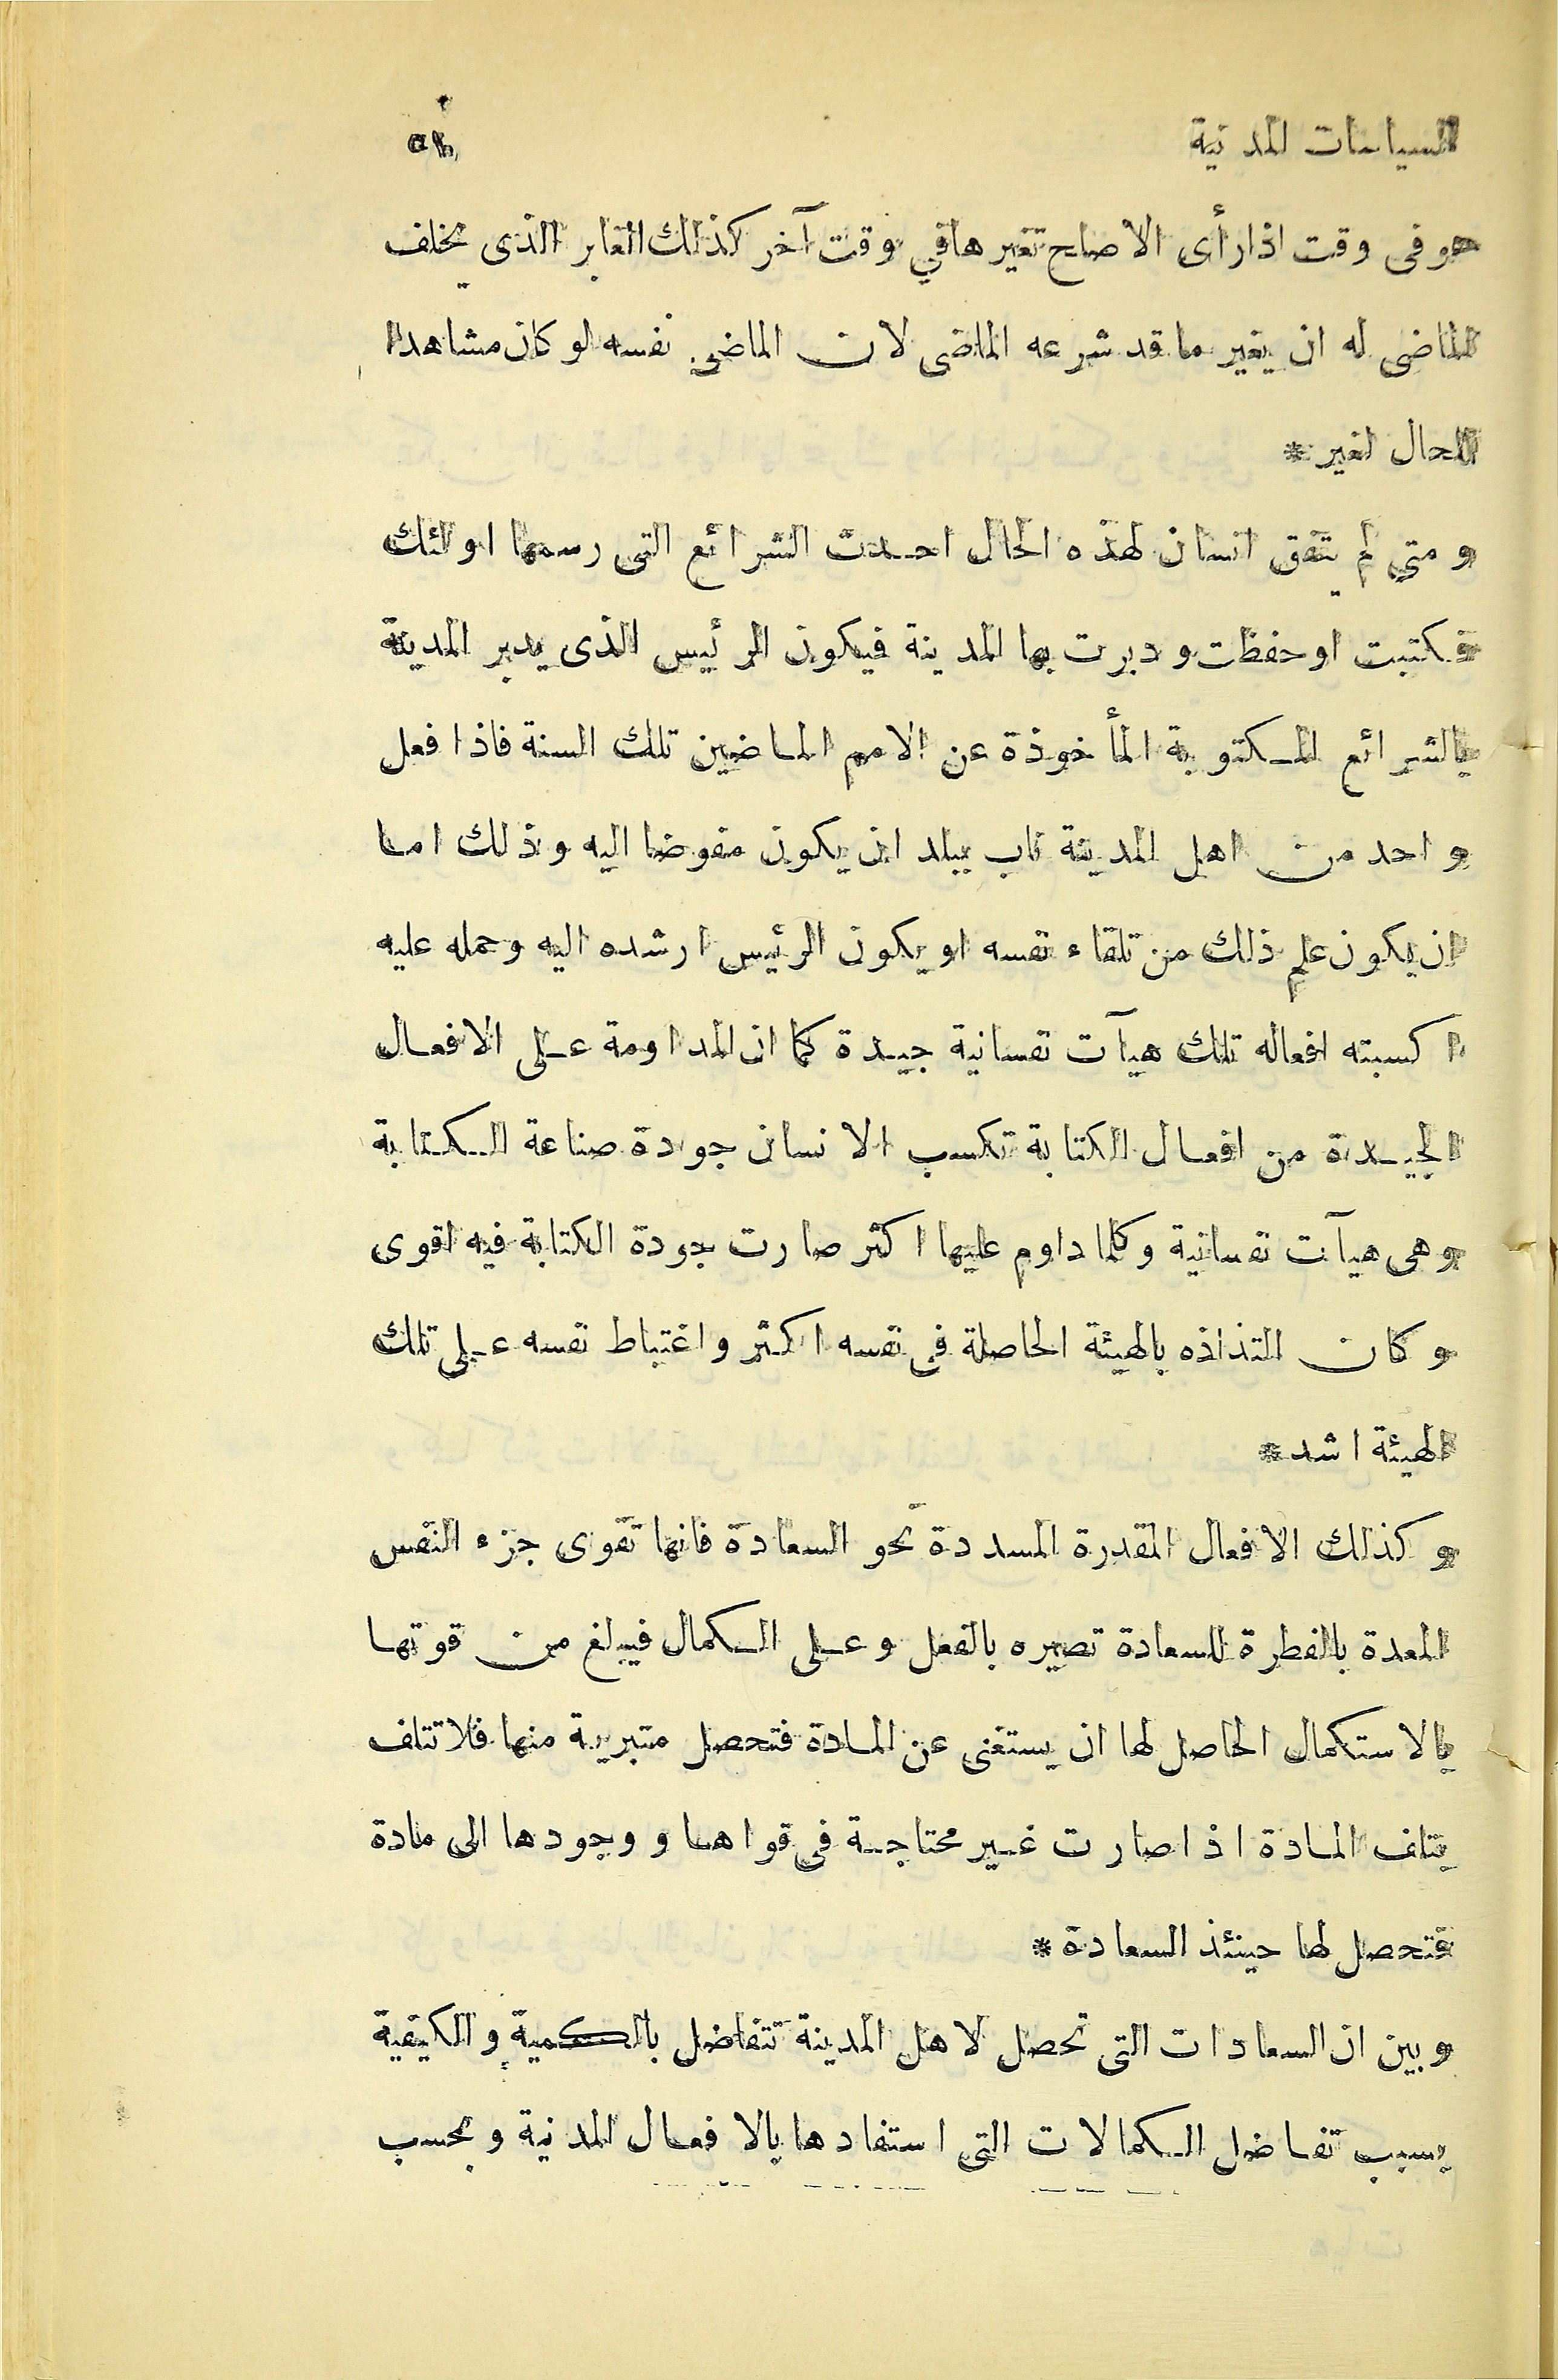 السياسات المدنية
هو فى وقت اذا رأى الاصلح تغيرها في وقت آخر كذلك الغابر الذى يخلف
الماضى له ان يغير ما قد شرعه الماضى لان الماضي نفسه لو كان مشاهدا
للحال لغير *
و متي لم يتفق انسان لهذه الحال احدث الشرائع التى رسمها اولئك
فكتبت او حفظت و دبرت بها المدينة فيكون الرئيس الذى يدبر المدينة
بالشرائع المكتوبة المأخوذة عن الامم الماضين تلك السنة فاذا فعل
واحد من اهل المدينة ناب ببلد ان يكون مفوضا اليه وذلك اما
ان يكون علم ذلك من تلقاء نفسه او يكون الرئيس ارشده اليه وحمله عليه
اكسبته افعاله تلك هيآت نفسانية جيدة كما ان المداومة على الافعال
الجيدة من افعال الكتابة تكسب الانسان جودة صناعة الكتابة
وهى هيآت نفسانية وكلما داوم عليها اكثر صارت جودة الكتابة فيه اقوى
وكان التذاذه بالهيئة الحاصلة فى نفسه اكثر واغتباط نفسه على تلك
الهيئة اشد *
وكذلك الافعال المقدرة المسددة نحو السعادة فانها تقوى جزء النفس
المعدة بالفطرة للسعادة تصيره بالفعل وعلى الكمال فيبلغ من قوتها
بالاستكمال الحاصل لها ان يستغنى عن المادة فتحصل متبرية منها فلا تتلف
بتلف المادة اذا صارت غير محتاجة فى قواها و وجودها الى مادة
فتحصل لها حينئذ السعادة *
وبين ان السعادات التى تحصل لاهل المدينة تتفاضل بالكمية والكيفية
بسبب تفاضل الكمالات التى استفادها بالافعال المدنية وبحسب